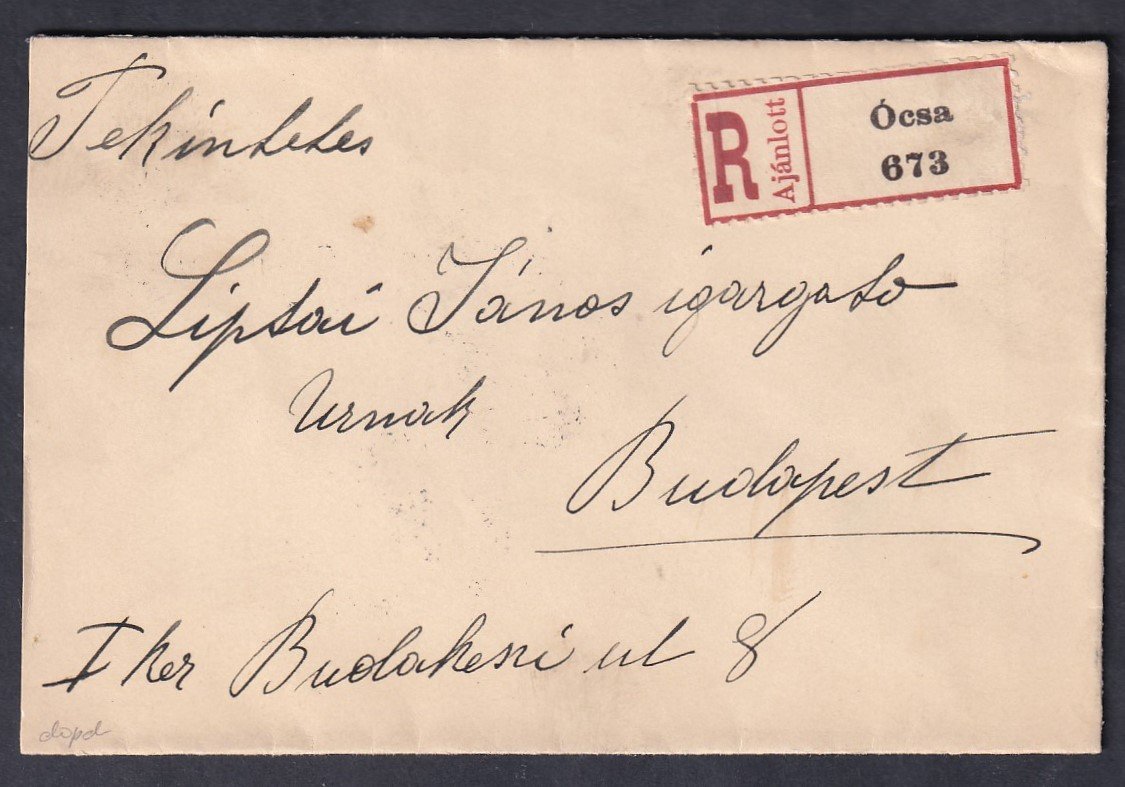 Tekintetes
R Ajánlott Ócsa
673
Liptai János igazgato
Urnak
Budapest
I ker Budakeszi ut 8